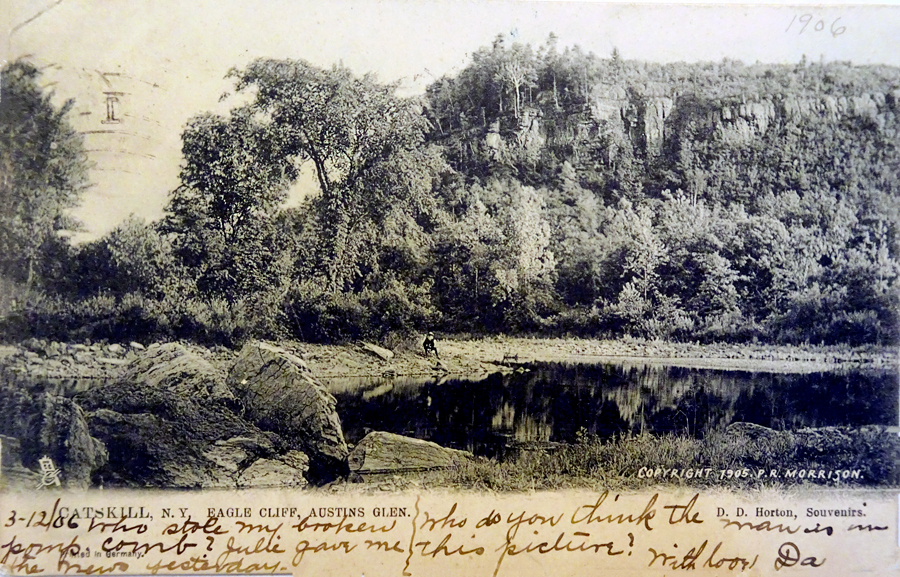 1906
COPYRIGHT 1905 P.R. MORRISON.
CATSKILL, N.Y. EAGLE CLIFF, AUSTINS GLEN.
D. D. Horton, Souvenirs.
3-12/06 Who stole my broken
pomp. comb? Julie gave me
the news yesterday.
in Germany.
Who do you think the man is in
this picture?
With love Da